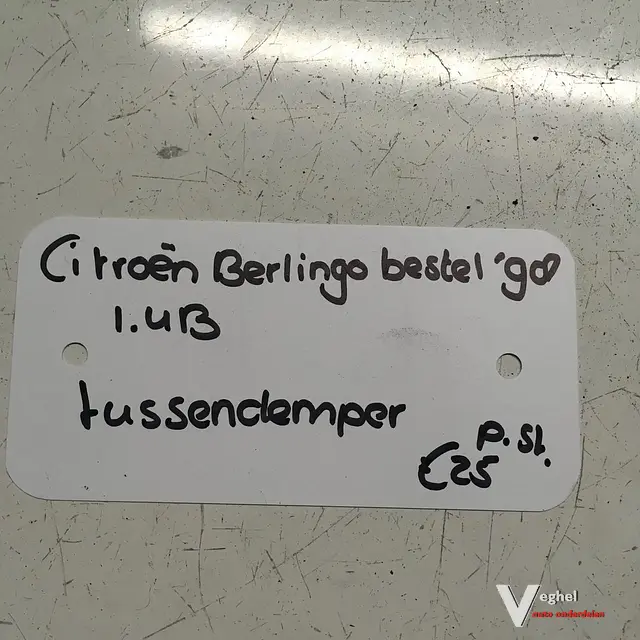 Citroën Berlingo bestel '98
1.4B
tussendemper
p. st.
€25
Veghel
auto onderdelen